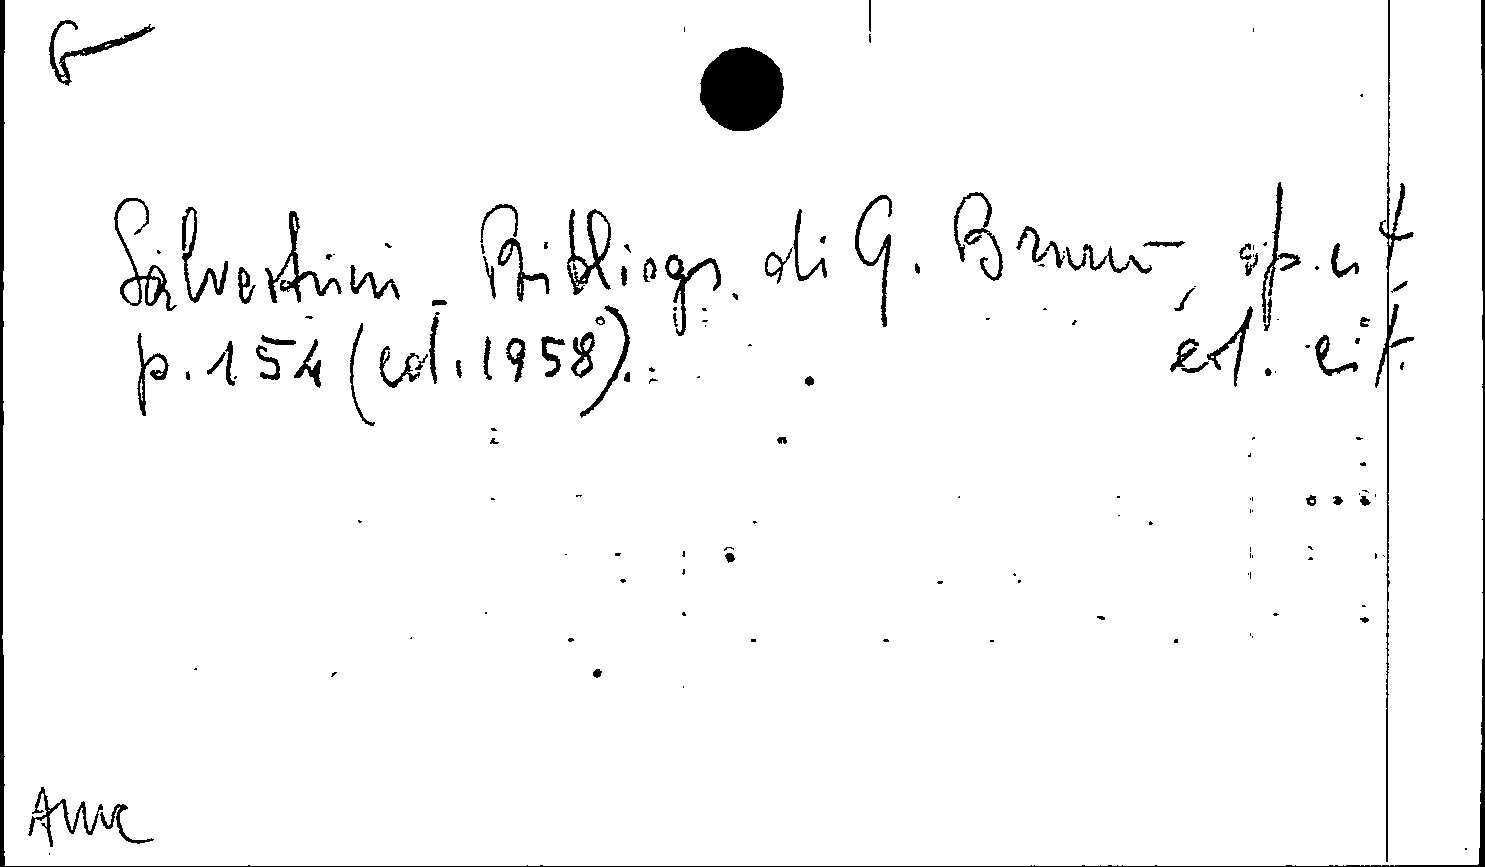 Salvestrini - Bibliogr. di G. Bruno, op. cit.,
p. 154 (ed. 1958).
ed. cit.